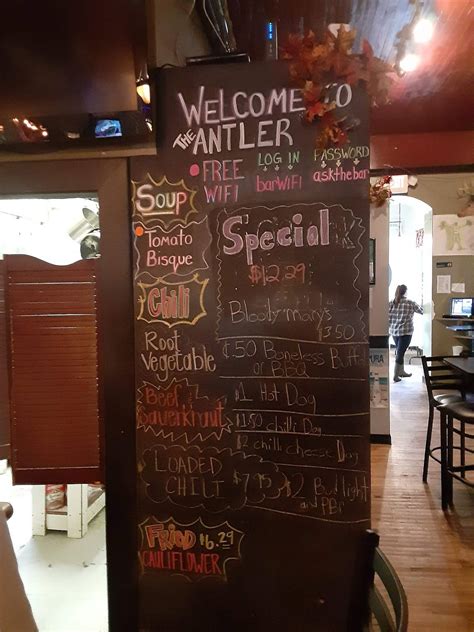 WELCOME TO
THE ANTLER
FREE WIFI
LOG IN
barWIFI
PASSWORD
askthebar
Soup
Tomato
Bisque
Chili
Root
Vegetable
Beef
Sauerkraut
LOADED
CHILI
$7.95
FRIED $6.29
CAULIFLOWER
Special
$12.29
Bloody mary's
$3.50
¢50 Boneless
or BBQ
$1 Hot Dog
$1.50 chili Dog
$2 chili cheese Dog
$2 Bud light
and PBR